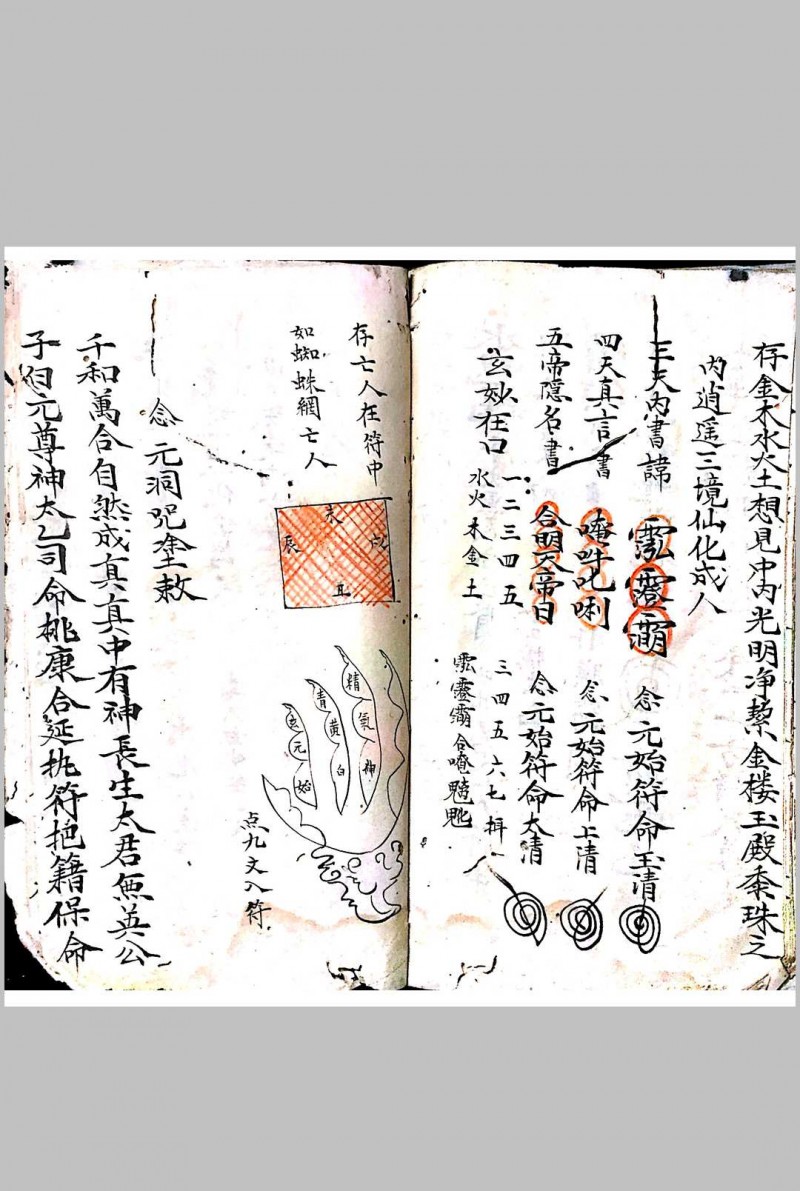 存金木水火土想見中內光明净蕠金楼玉殿黍珠之
內逍遥三境仙化成人
三天內書諱
念元始符命玉清
四天真言書
唵吽吒唎
念元始符命上清
五帝隱名書
合明天帝日
念元始符命太清
玄妙在口
一二三四五
三四五六七揖
水火木金土
存亡人在符中
如蜘蛛網亡人
未
辰
戌
丑
精氣神
青黄白
玄元始
点九文入符
念元洞咒塗敕
千和萬合自然成真真中有神長生大君無英公
子白元尊神太乙司命桃康合延执符把籍保命